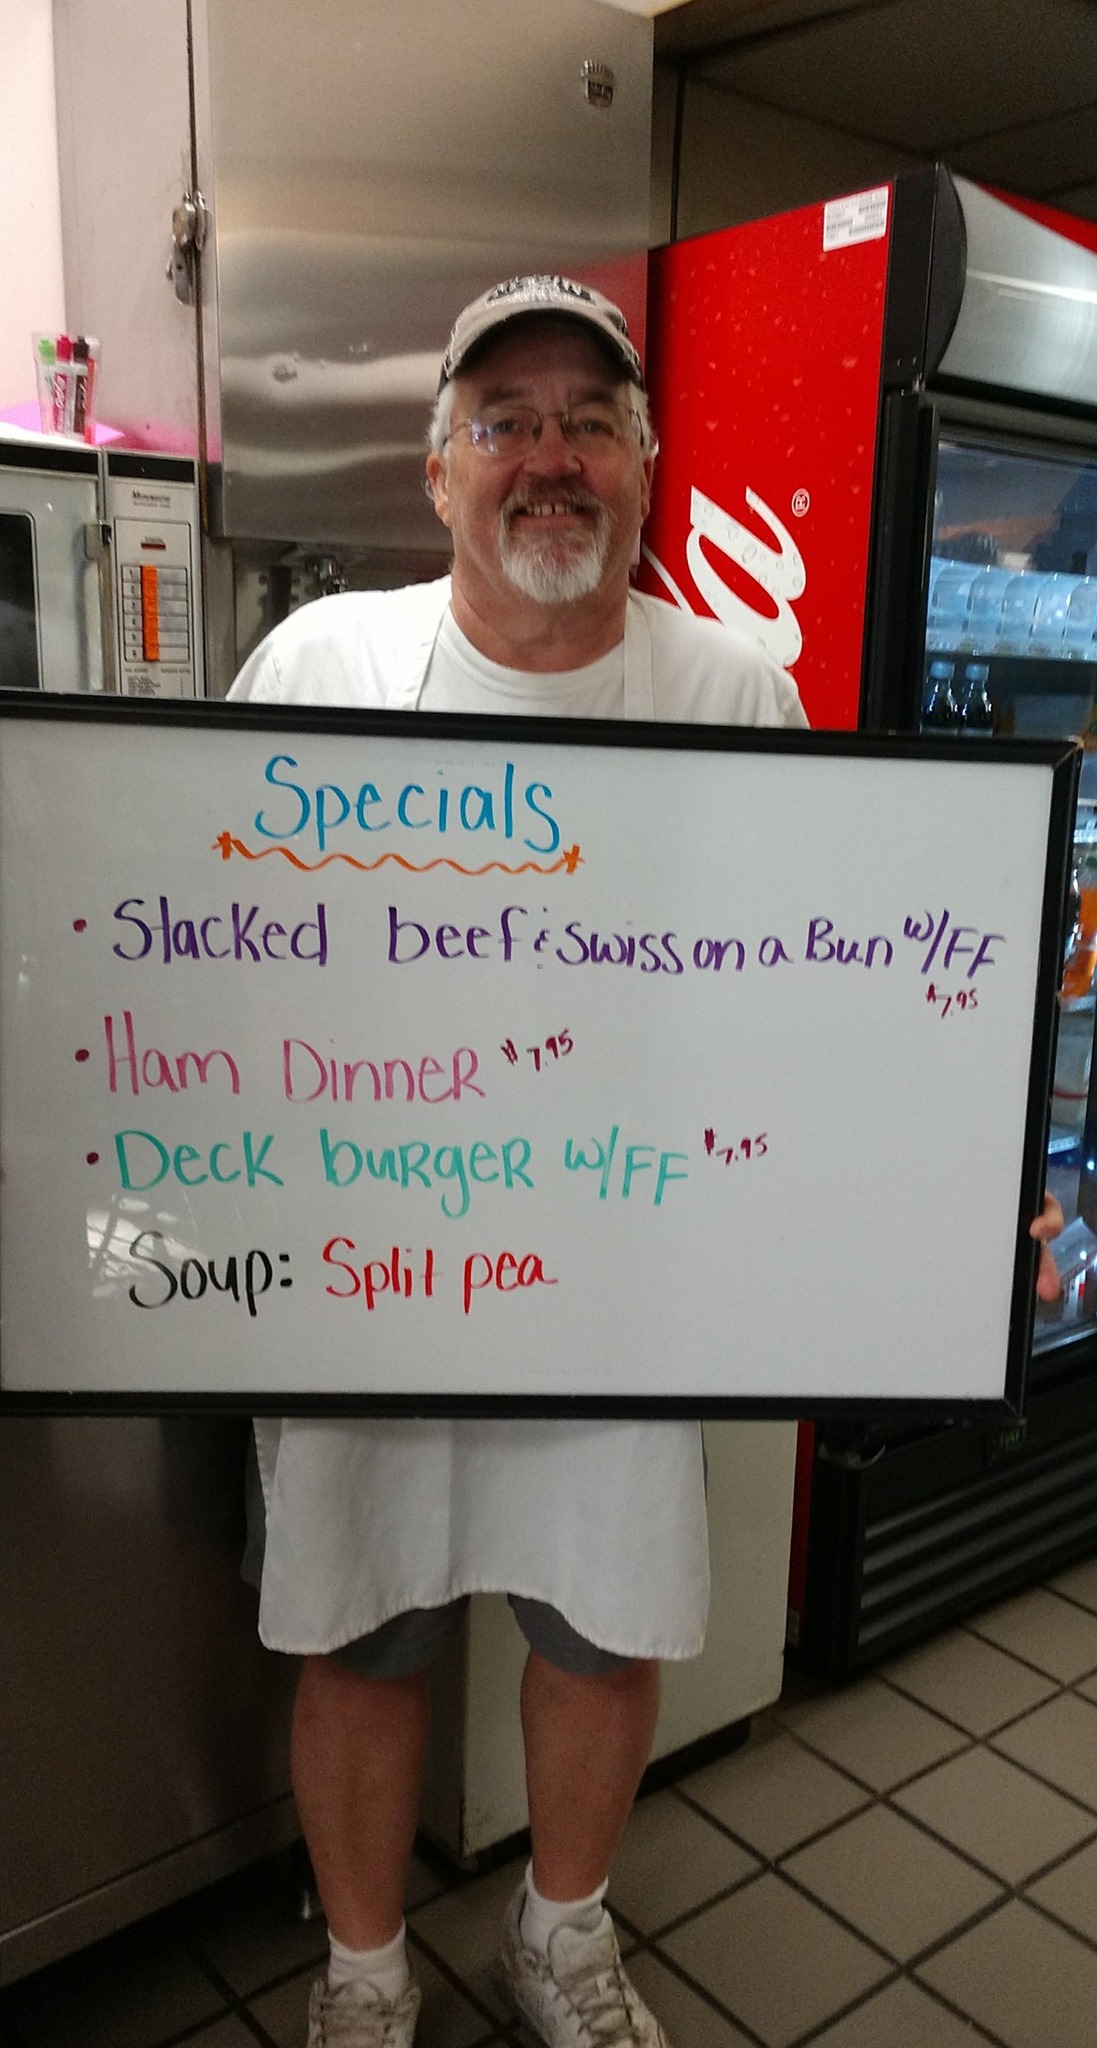 Specials
• Stacked beef & Swiss on a Bun w/FF
$7.95
• Ham Dinner $7.95
• Deck burger w/FF $7.95
Soup: Split pea